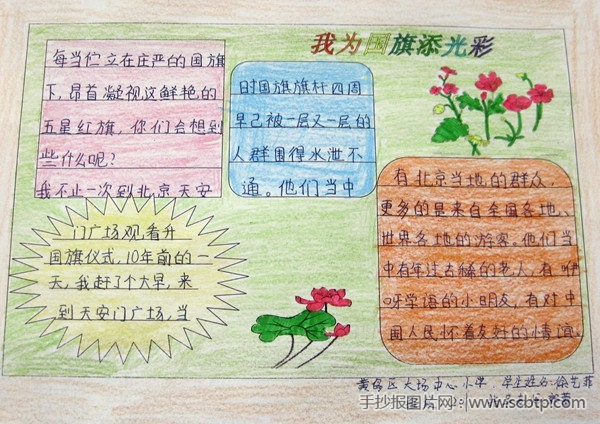 我为国旗添光彩
每当伫立在庄严的国旗
下，昂首凝视这鲜艳的
五星红旗，你们会想到
些什么呢？
我不止一次到北京天安
门广场观看升
国旗仪式，10年前的一
天，我赶了个大早，来
到天安门广场，当
时国旗旗杆四周
早已被一层又一层的
人群围得水泄不
通。他们当中
有北京当地的群众，
更多的是来自全国各地、
世界各地的游客。他们当
中有年过古稀的老人，有咿
呀学语的小朋友，有对中
国人民怀着友好的情谊。
黄岛区大场中心小学 学生姓名：徐艺菲
手抄报图片网：www.scbtp.com